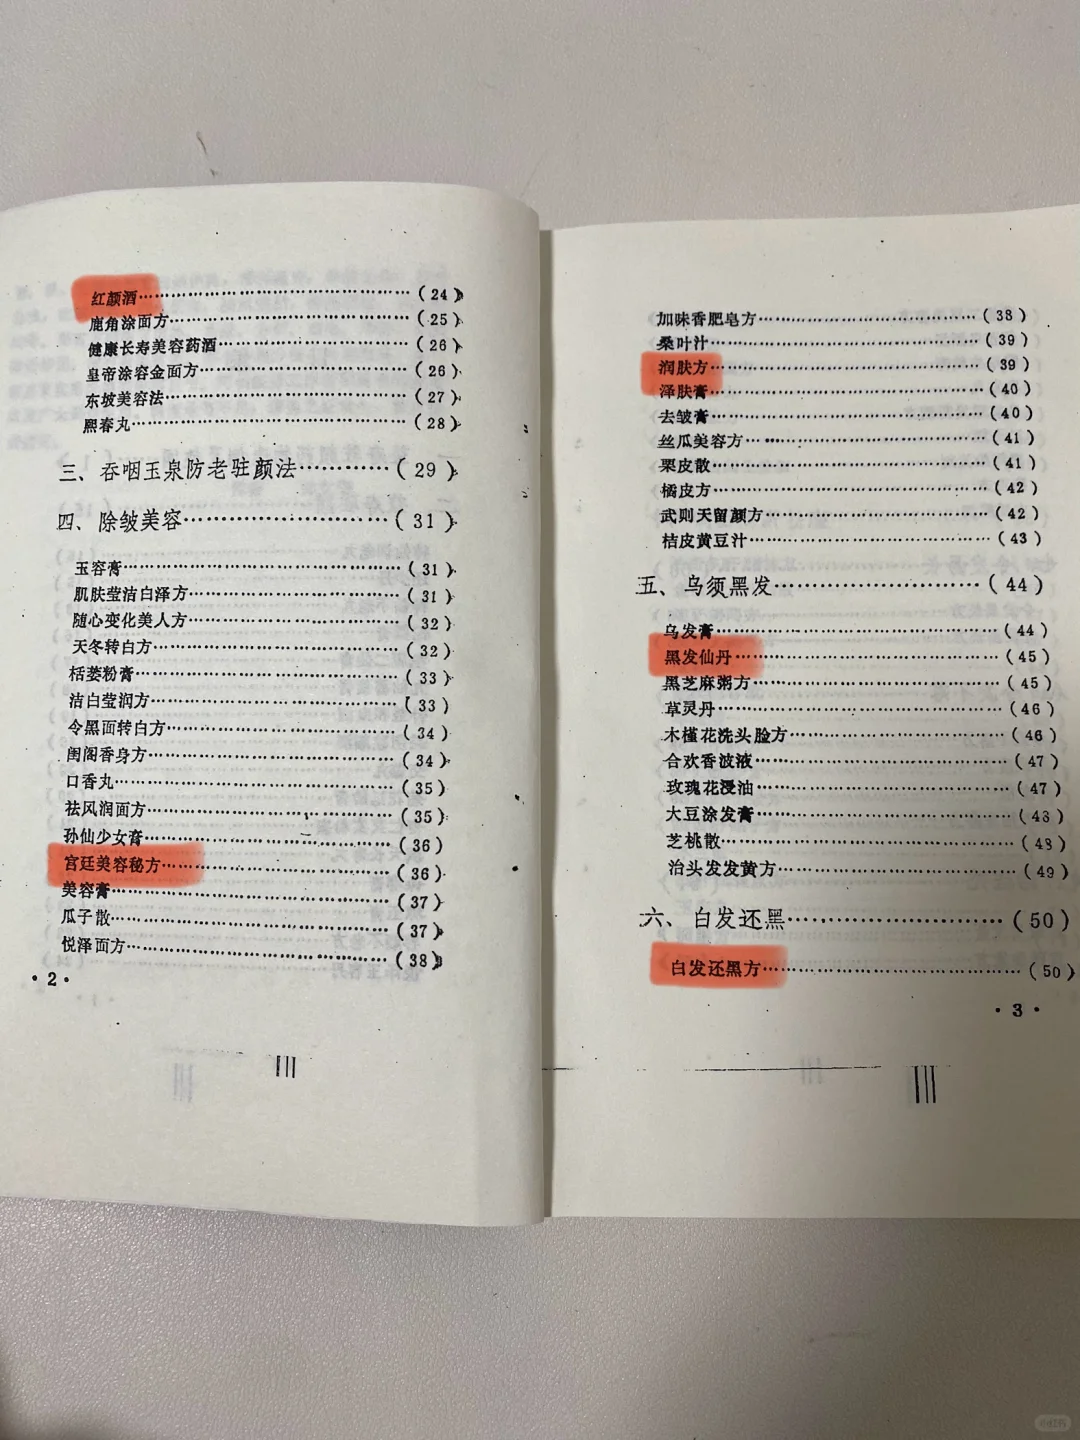 红颜酒……………………………(24)
鹿角涂面方……………………………(25)
健康长寿美容药酒……………………………(26)
皇帝涂容金面方……………………………(26)
东坡美容法……………………………(27)
熙春丸……………………………(28)
三、吞咽玉泉防老驻颜法…………(29)
四、除皱美容……………………(31)
玉容膏……………………………(31)
肌肤莹洁白泽方……………………………(31)
随心变化美人方……………………………(32)
天冬转白方……………………………(32)
栝蒌粉膏……………………………(33)
洁白莹润方……………………………(33)
令黑面转白方……………………………(34)
闺阁香身方……………………………(34)
口香丸……………………………(35)
祛风润面方……………………………(35)
孙仙少女膏……………………………(36)
宫廷美容秘方……………………………(36)
美容膏……………………………(37)
瓜子散……………………………(37)
悦泽面方……………………………(38)
·2·
加味香肥皂方……………………………(38)
桑叶汁……………………………(39)
润肤方……………………………(39)
泽肤膏……………………………(40)
去皱膏……………………………(40)
丝瓜美容方……………………………(41)
栗皮散……………………………(41)
橘皮方……………………………(42)
武则天留颜方……………………………(42)
桔皮黄豆汁……………………………(43)
五、乌须黑发……………………(44)
乌发膏……………………………(44)
黑发仙丹……………………………(45)
黑芝麻粥方……………………………(45)
草灵丹……………………………(46)
木槿花洗头脸方……………………………(46)
合欢香波液……………………………(47)
玫瑰花浸油……………………………(47)
大豆涂发膏……………………………(48)
芝桃散……………………………(48)
治头发发黄方……………………………(49)
六、白发还黑……………………(50)
白发还黑方……………………………(50)
·3·